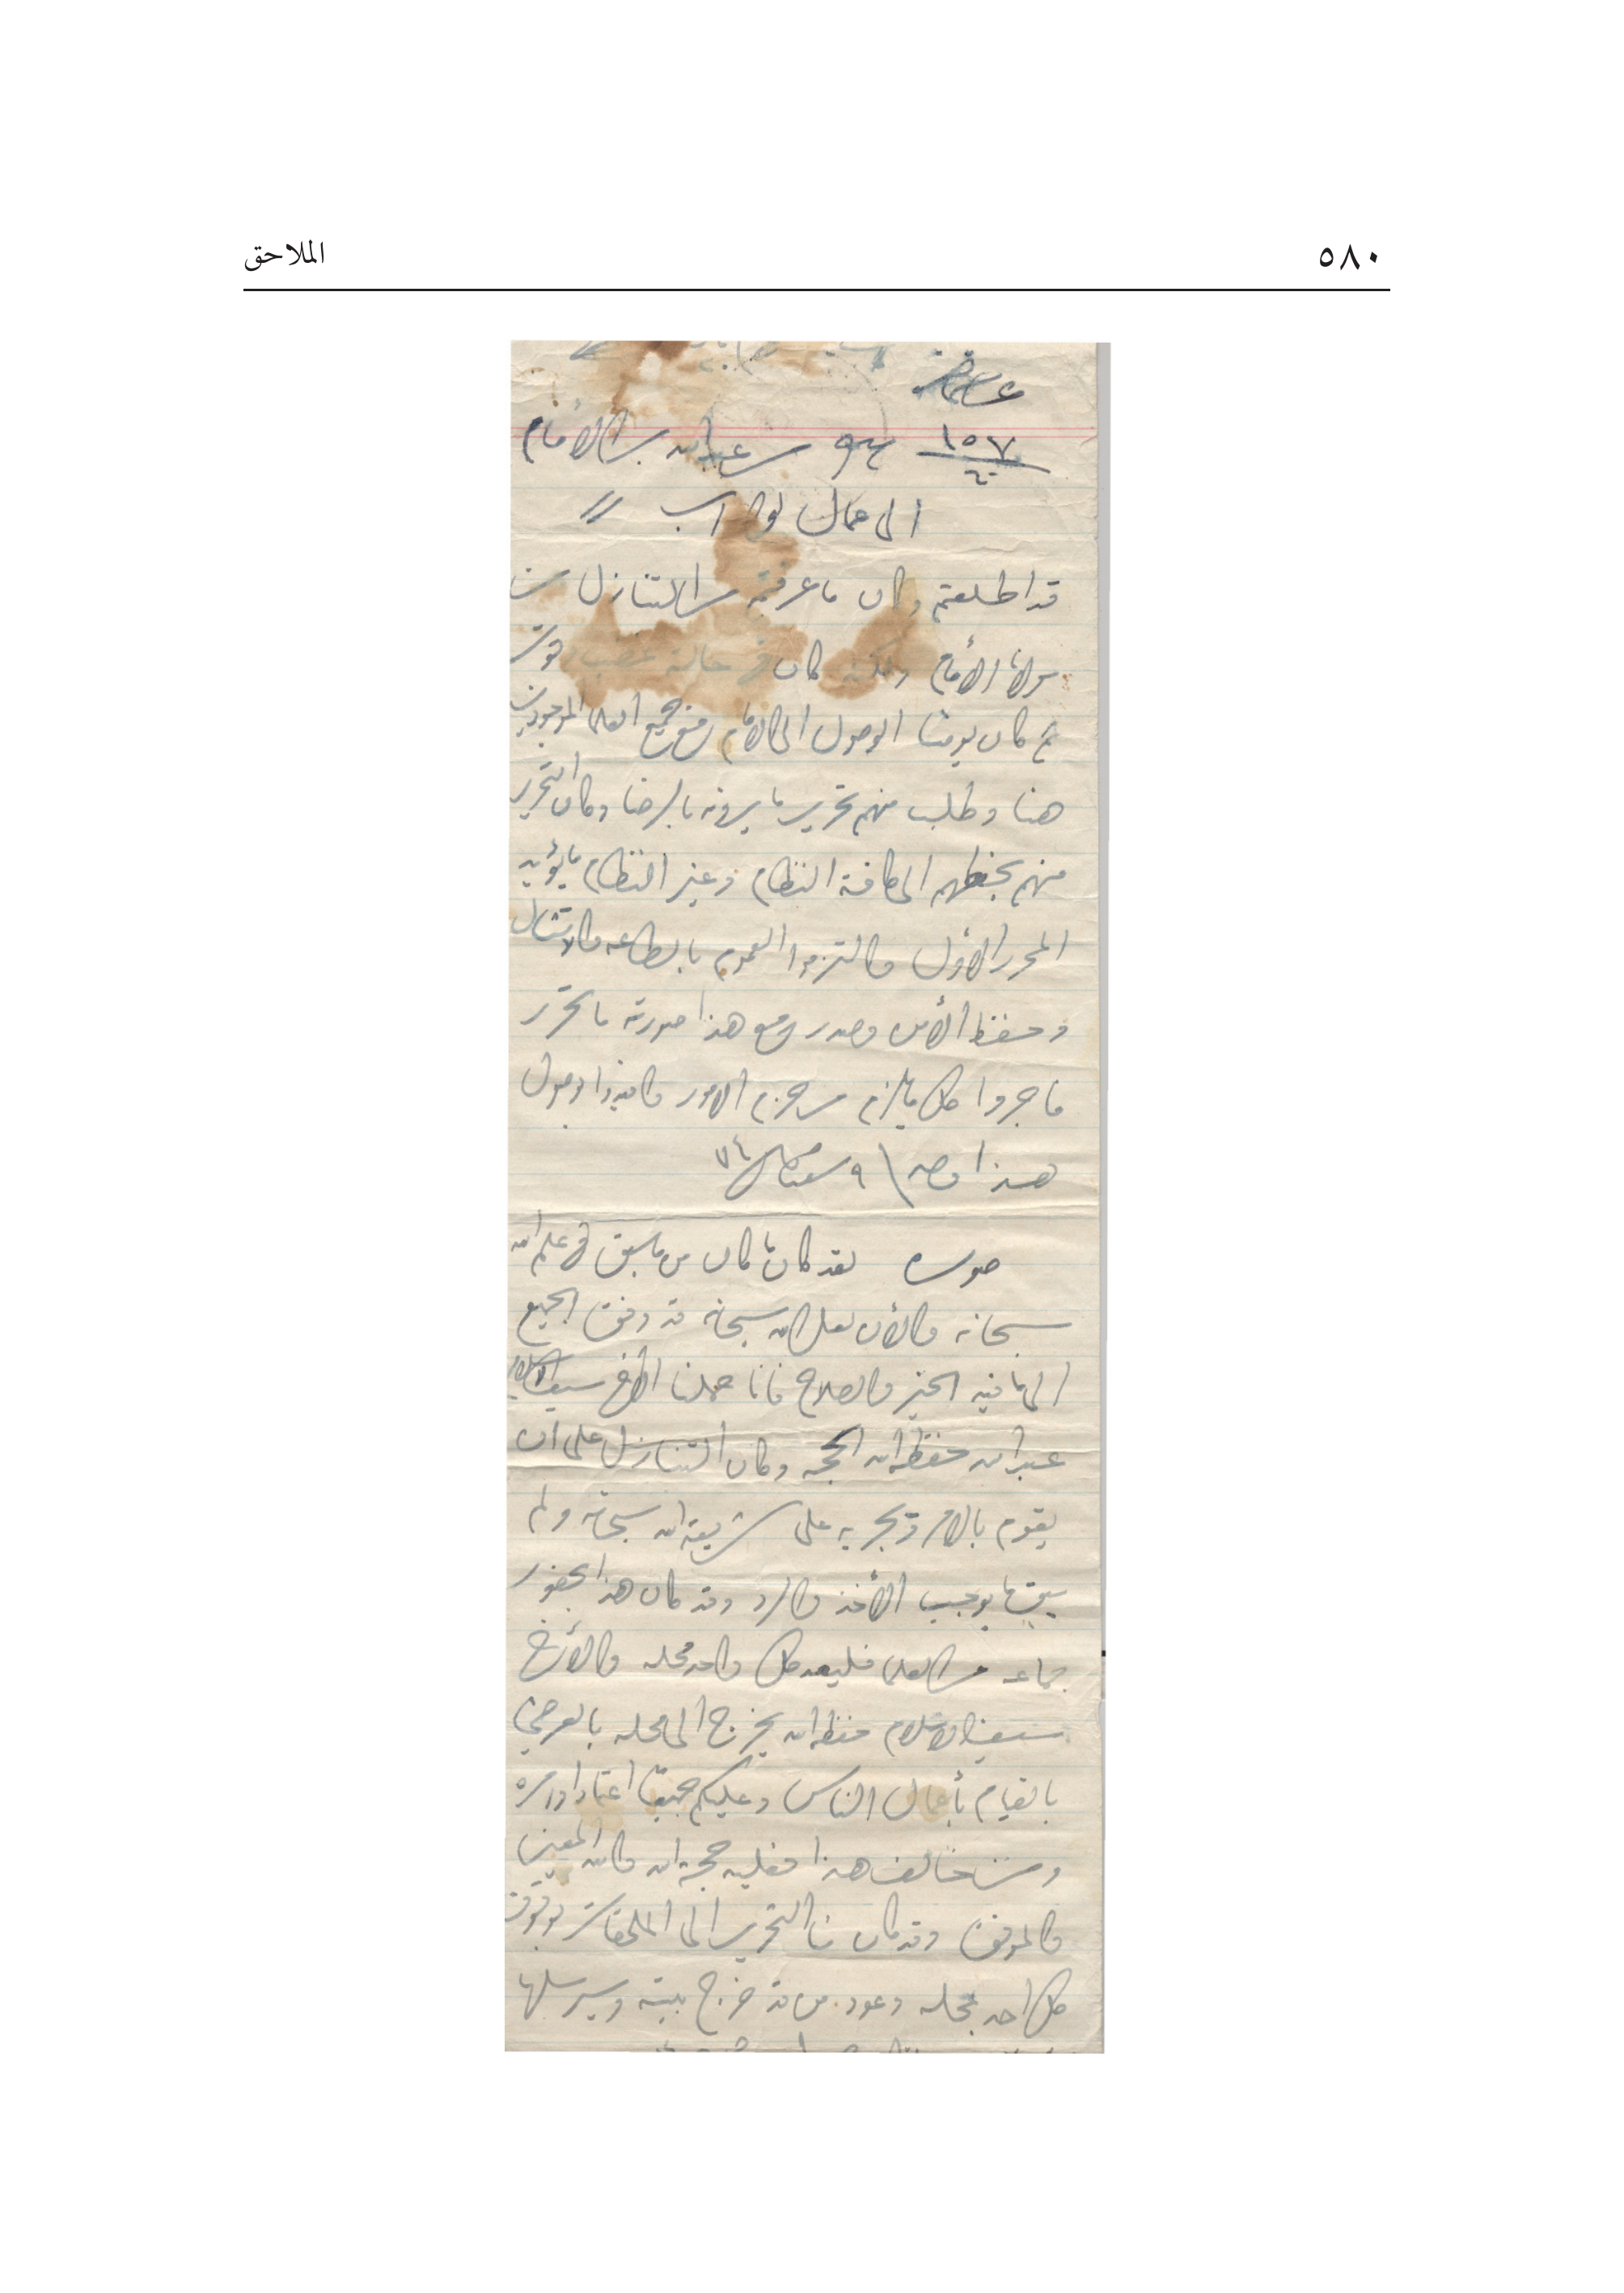 ٥٨٠
الملاحق
١٥٧
٦٠
عبدالله بن الامام
الى عمال لواء اب //
قد اطلعتم وكان ما عرفتم من التنازل من
مولانا الأمام ولكنه كان في حالة غضب
ثم كان يومنا الوصول الى الامام مع جميع العلماء الموجودين
هنا وطلب منهم تحرير ما يرونه بالرضا وكان التحرير
منهم بخطهم الى كافة النظام وغير النظام ما يؤيد
المحرر الأول والتزموا العموم بالطاعه والامتثال
وحفظ الأمن وصدر مع هذا صورة ما تحرر
فاجروا كل ما يلزم من حزم الامور وافيدوا وصول
هذا ٩ شعبان ٧٤
صوره لقد كان ما كان من ما سبق في علم الله
سبحانه والأن لعل الله سبحانه قد وفق الجميع
الى ما فيه الخير والصلاح فانا حملنا الاخ سيف الاسلام
عبدالله حفظه الله الحجه وكان التنازل على ان
يقوم بالامر ويجريه على شريعة الله سبحانه ولم
يبق ما يوجب الأخذ والرد وقد كان هذا بحضور
جماعه من العلماء فليعد كل واحد محله والأخ
سيف الاسلام حفظه الله يخرج الى محله بالعرضي
بالقيام بأعمال الناس وعليكم جميعا اعتماد اوامره
ومن خالف هذا فعليه حجة الله والله المعين
والموفق وقد كان منا التحرير الى الملحقات بوقوف
كل احد بمحله وعود من قد خرج بيته وسيرسلها